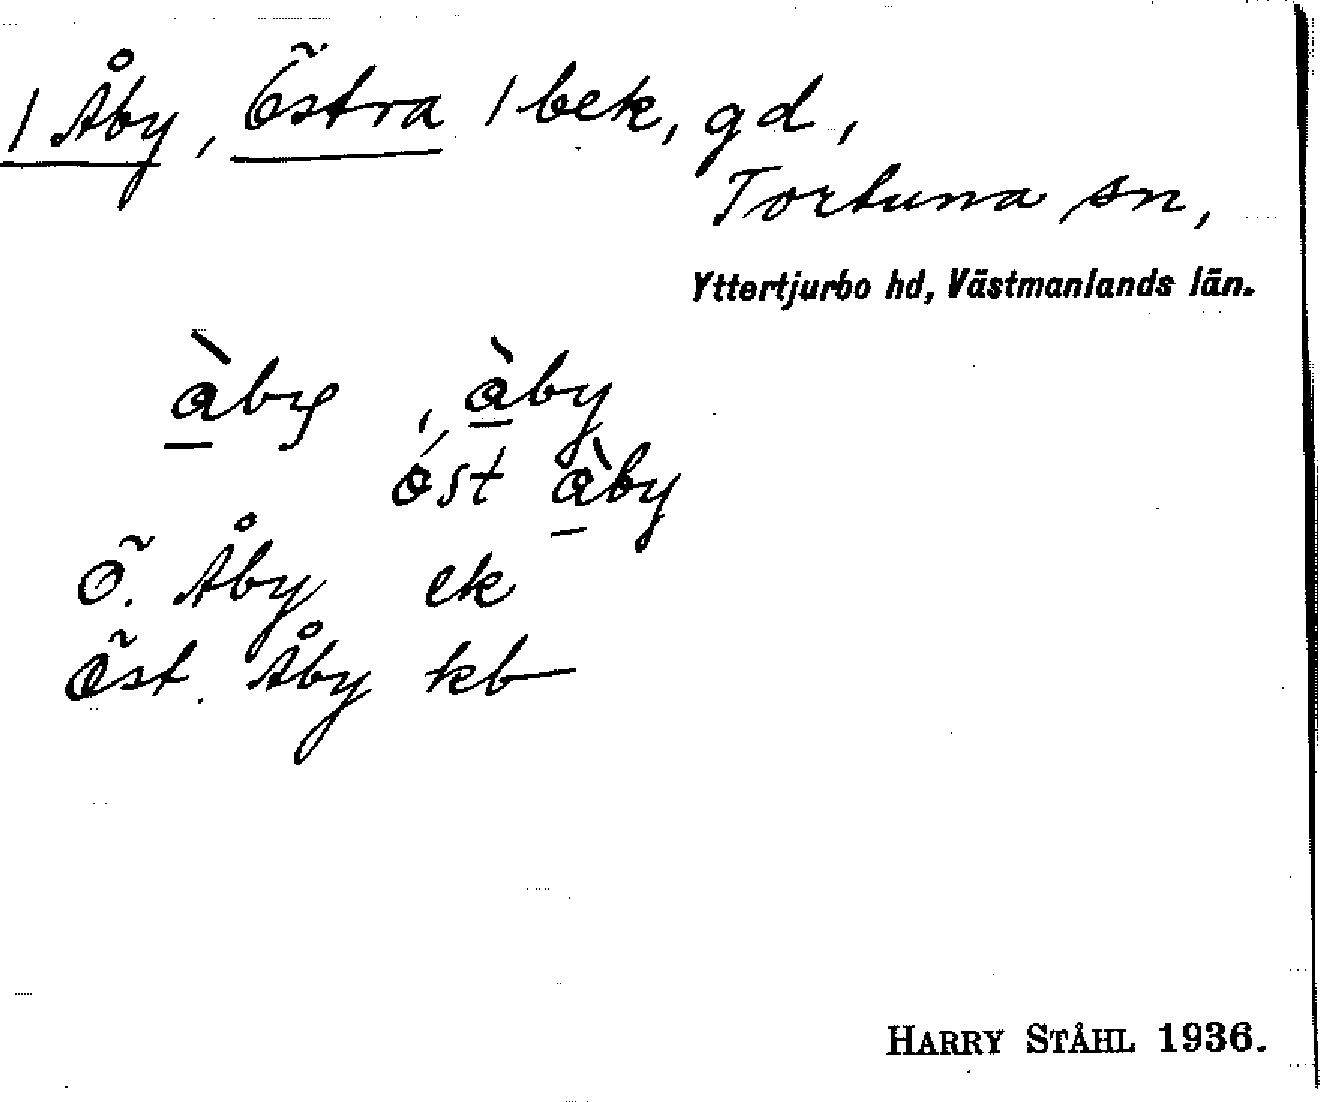 / Åby, Östra / bek, gd,
Tortuna sn,
Yttertjurbo hd, Västmanlands län.
àby, àby
óst àby
Ö. Åby ek
Öst. Åby kb
HARRY STÅHL 1936.